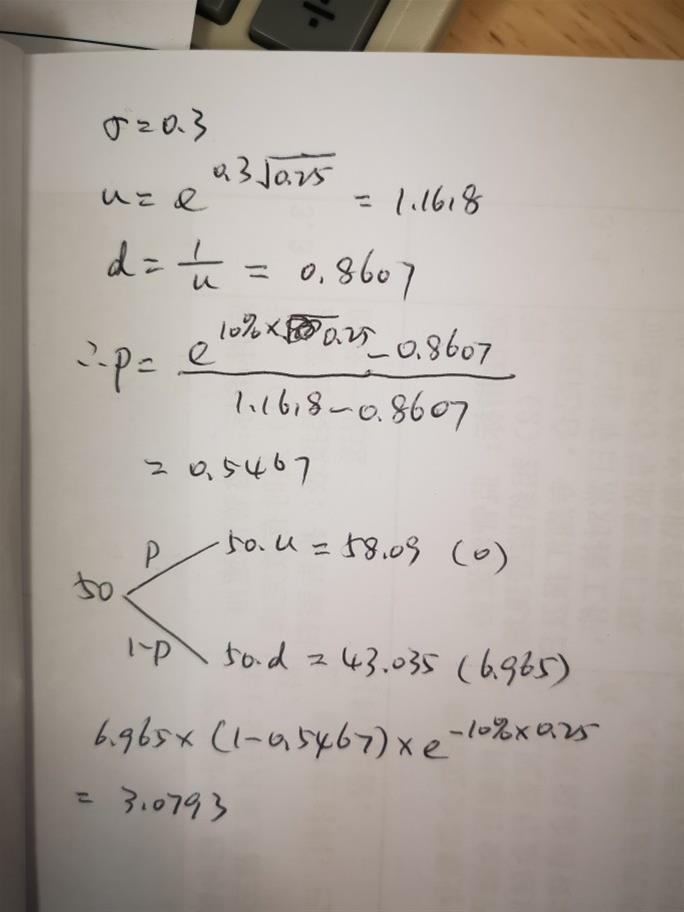 ÷
σ=0.3
u= e^{0.3√0.25} = 1.1618
d= 1/u = 0.8607
∴p= (e^{10%×0.25}-0.8607)/(1.1618-0.8607)
= 0.5467
p 50·u = 58.09 (0)
50
1-p 50·d = 43.035 (6.965)
6.965×(1-0.5467)×e^{-10%×0.25}
= 3.0793